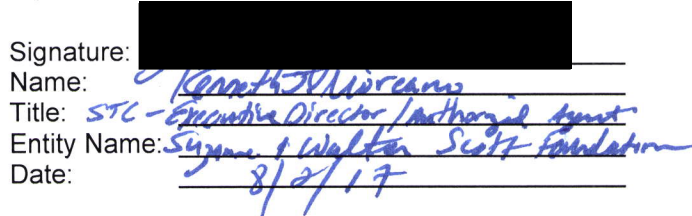 Signature:
Name: Kenneth J Moreano
Title: STC - Executive Director / Authorized Agent
Entity Name: Suzanne & Walter Scott Foundation
Date: 8/2/17